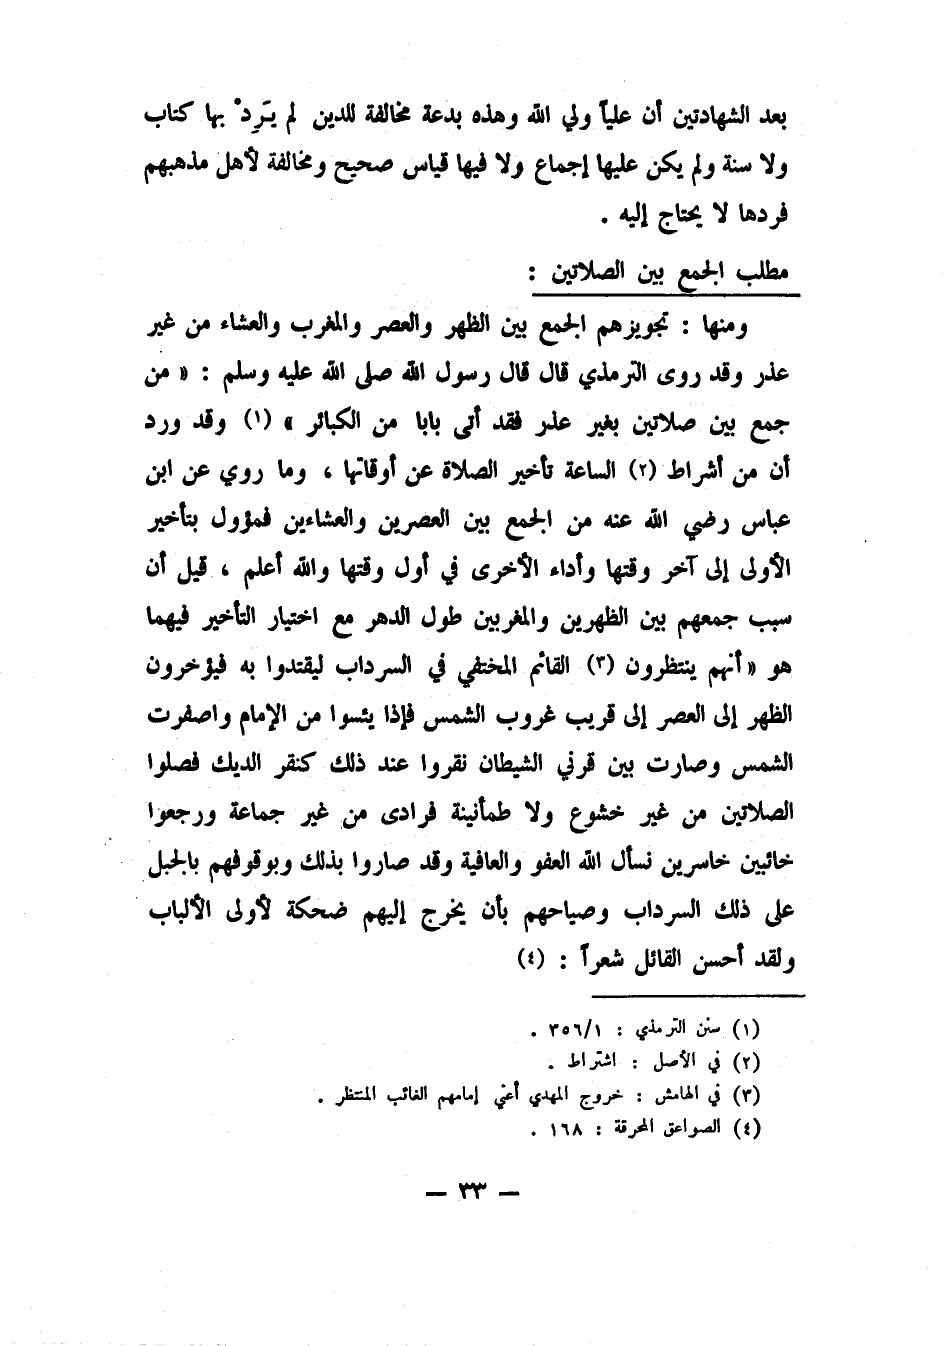 بعد الشهادتين أن علياً ولي الله وهذه بدعة مخالفة للدين لم يَرِدْ بها كتاب
ولا سنة ولم يكن عليها إجماع ولا فيها قياس صحيح ومخالفة لأهل مذهبهم
فردها لا يحتاج إليه .
مطلب الجمع بين الصلاتين :
ومنها : تجويزهم الجمع بين الظهر والعصر والمغرب والعشاء من غير
عذر وقد روى الترمذي قال قال رسول الله صلى الله عليه وسلم : « من
جمع بين صلاتين بغير عذر فقد أتى بابا من الكبائر » (١) وقد ورد
أن من أشراط (٢) الساعة تأخير الصلاة عن أوقاتها ، وما روي عن ابن
عباس رضي الله عنه من الجمع بين العصرين والعشاءين فمؤول بتأخير
الأولى إلى آخر وقتها وأداء الأخرى في أول وقتها والله أعلم ، قيل أن
سبب جمعهم بين الظهرين والمغربين طول الدهر مع اختيار التأخير فيهما
هو « أنهم ينتظرون (٣) القائم المختفي في السرداب ليقتدوا به فيؤخرون
الظهر إلى العصر إلى قريب غروب الشمس فإذا يئسوا من الإمام واصفرت
الشمس وصارت بين قرني الشيطان نقروا عند ذلك كنقر الديك فصلوا
الصلاتين من غير خشوع ولا طمأنينة فرادى من غير جماعة ورجعوا
خائبين خاسرين نسأل الله العفو والعافية وقد صاروا بذلك وبوقوفهم بالجبل
على ذلك السرداب وصياحهم بأن يخرج إليهم ضحكة لأولى الألباب
ولقد أحسن القائل شعراً : (٤)
(١) سنن الترمذي : ٣٥٦/١ .
(٢) في الأصل : اشتراط .
(٣) في الهامش : خروج المهدي أعني إمامهم الغائب المنتظر .
(٤) الصواعق المحرقة : ١٦٨ .
— ٣٣ —